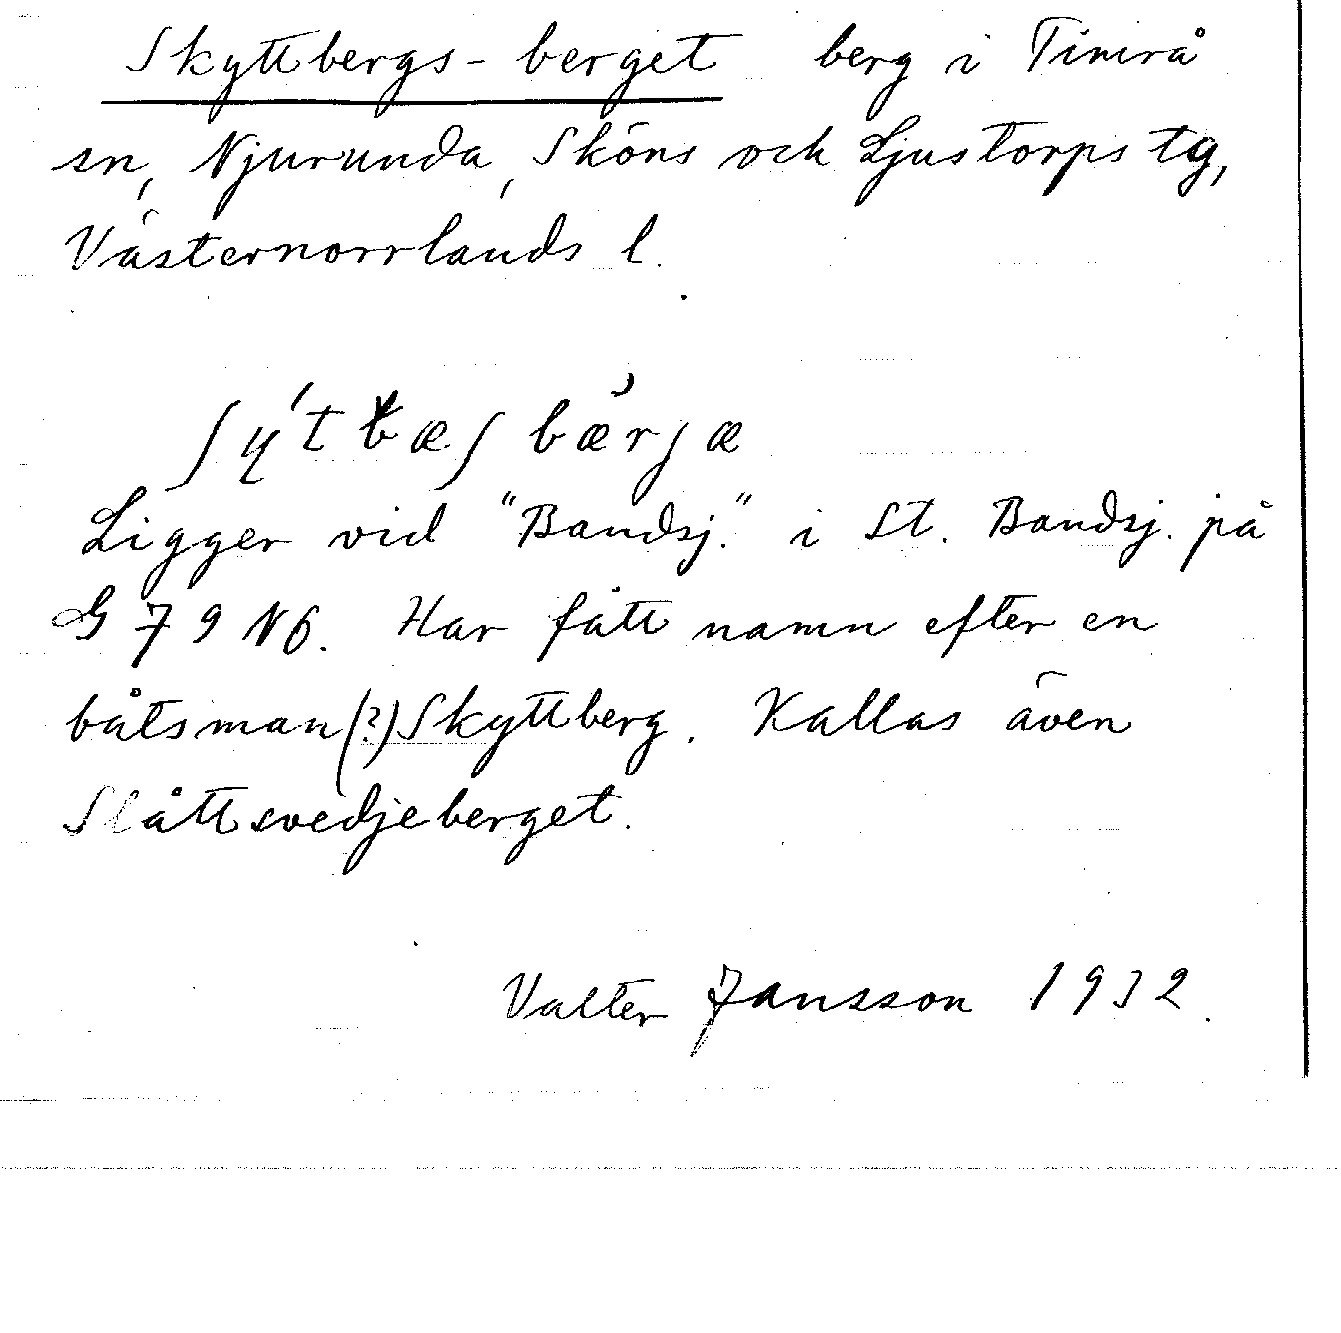 Skyttbergs-berget berg i Timrå
sn, Njurunda, Sköns och Ljustorps tg,
Västernorrlands l.
Ligger vid "Bandsj." i St. Bandsj. på
G 7 9 N6. Har fått namn efter en
båtsman(?) Skyttberg. Kallas även
Slåttsvedjeberget.
Valter Jansson 1932.